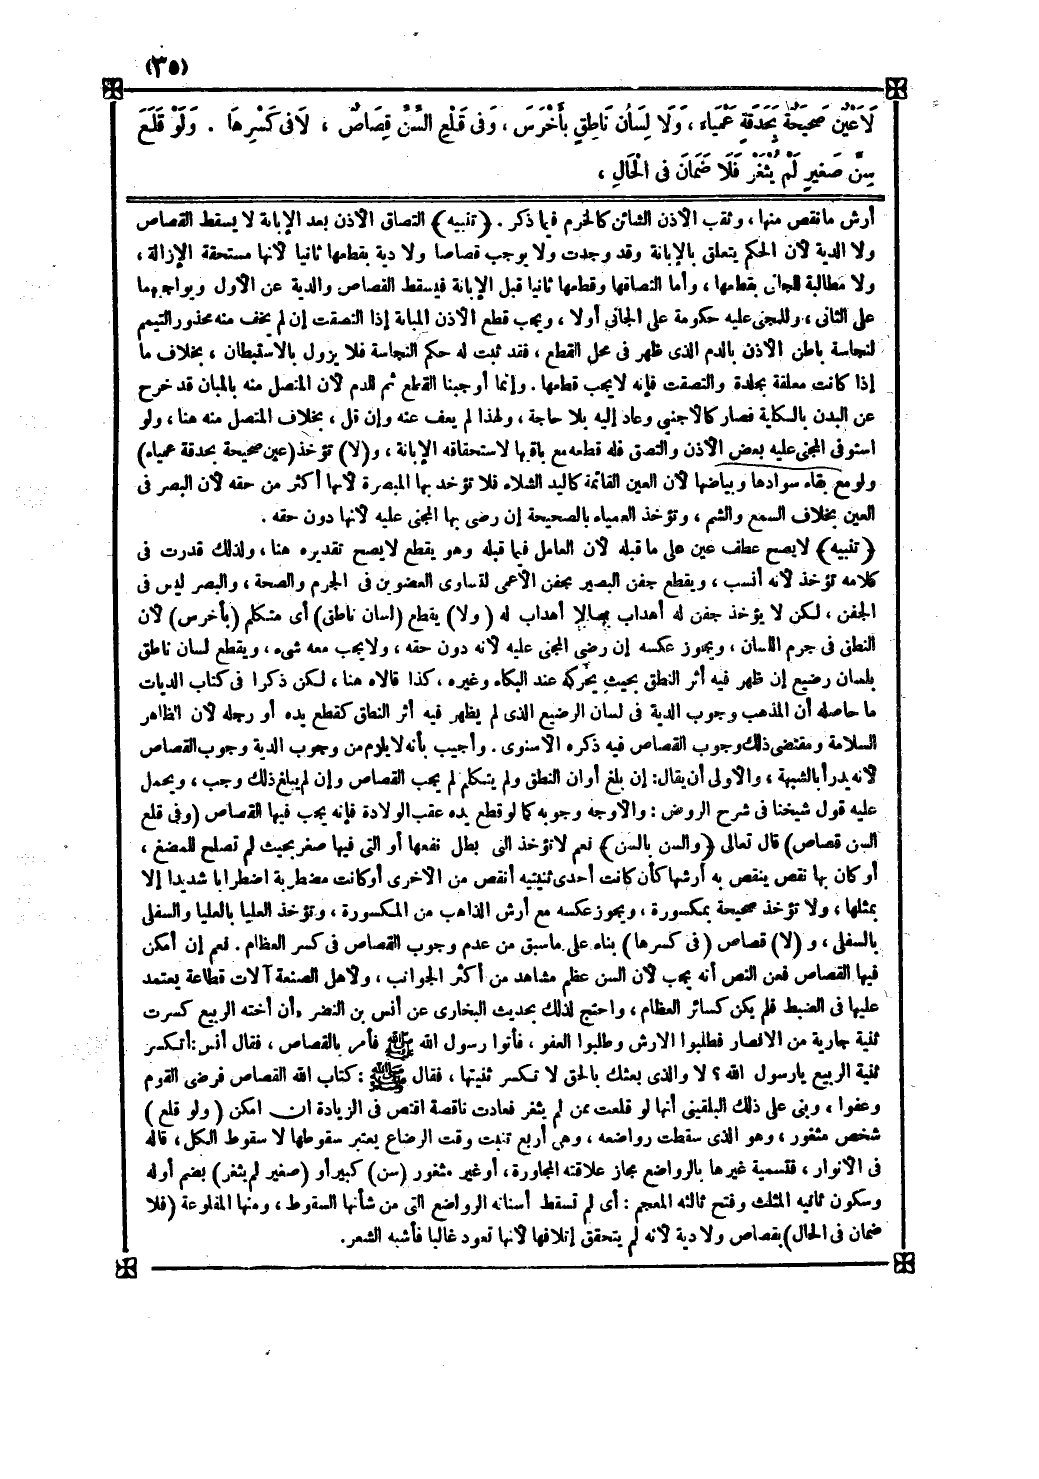 (٣٥)
لَا عَيْنٌ صَحِيحَةٌ بِحَدَقَةٍ عَمْيَاءَ ، وَلَا لِسَانُ نَاطِقٍ بِأَخْرَسَ ، وَفِى قَلْعِ السِّنِّ قِصَاصٌ ، لَا فِى كَسْرِهَا . وَلَوْ قَلَعَ
سِنَّ صَغِيرٍ لَمْ يُثْغَرْ فَلَا ضَمَانَ فِى الْحَالِ ،
أرش ما نقص منها ، وثقب الأذن الشائن كالخرم فيما ذكر . ( تنبيه ) التصاق الأذن بعد الإبانة لا يسقط القصاص
ولا الدية لأن الحكم يتعلق بالإبانة وقد وجدت ولا يوجب قصاصا ولا دية بقطعها ثانيا لأنها مستحقة الإزالة ،
ولا مطالبة للجانى بقطعها ، وأما التصاقها وقطعها ثانيا قبل الإبانة فيسقط القصاص والدية عن الأول ويواجههما
على الثانى ، وللمجنى عليه حكومة على الجاني أولا ، ويجب قطع الأذن المبانة إذا التصقت إن لم يخف منه محذور التيمم
لنجاسة باطن الأذن بالدم الذى ظهر فى محل القطع ، فقد ثبت له حكم النجاسة فلا يزول بالاستبطان ، بخلاف ما
إذا كانت معلقة بجلدة والتصقت فإنه لا يجب قطعها . وإنما أوجبنا القطع ثم للدم لأن المتصل منه بالمبان قد خرج
عن البدن بالكلية فصار كالأجنبي وعاد إليه بلا حاجة ، ولهذا لم يعف عنه وإن قل ، بخلاف المتصل منه هنا ، ولو
استوفى المجنى عليه بعض الأذن والتصق فله قطعه مع باقيها لاستحقاقه الإبانة ، و(لا) تؤخذ (عين صحيحة بحدقة عمياء)
ولو مع بقاء سوادها وبياضها لأن العين القائمة كاليد الشلاء فلا تؤخذ بها المبصرة لأنها أكثر من حقه لأن البصر فى
العين بخلاف السمع والشم ، وتؤخذ العمياء بالصحيحة إن رضى بها المجنى عليه لأنها دون حقه .
( تنبيه ) لا يصح عطف عين على ما قبله لأن العامل فيما قبله وهو يقطع لا يصح تقديره هنا ، ولذلك قدرت فى
كلامه تؤخذ لأنه أنسب ، ويقطع جفن البصير بجفن الأعمى لتساوى العضوين فى الجرم والصحة ، والبصر ليس فى
الجفن ، لكن لا يؤخذ جفن له أهداب بما لا أهداب له ( ولا ) يقطع ( لسان ناطق ) أى متكلم ( بأخرس ) لأن
النطق فى جرم اللسان ، ويجوز عكسه إن رضى المجنى عليه لأنه دون حقه ، ولا يجب معه شىء ، ويقطع لسان ناطق
بلسان رضيع إن ظهر فيه أثر النطق بحيث يحركه عند البكاء وغيره ، كذا قالاه هنا ، لكن ذكرا فى كتاب الديات
ما حاصله أن المذهب وجوب الدية فى لسان الرضيع الذى لم يظهر فيه أثر النطق كقطع يده أو رجله لأن الظاهر
السلامة ومقتضى ذلك وجوب القصاص فيه ذكره الاسنوى . وأجيب بأنه لا يلزم من وجوب الدية وجوب القصاص
لأنه يدرأ بالشبهة ، والاولى أن يقال : إن بلغ أوان النطق ولم يتكلم لم يجب القصاص وإن لم يبلغ ذلك وجب ، ويحمل
عليه قول شيخنا فى شرح الروض : والأوجه وجوبه كما لو قطع يده عقب الولادة فإنه يجب فيها القصاص (وفى قلع
السن قصاص) قال تعالى ( والسن بالسن ) نعم لا تؤخذ التى بطل نفعها أو التى فيها صغر بحيث لم تصلح للمضغ ،
أو كان بها نقص ينقص به أرشها كأن كانت أحدى ثنيتيه أنقص من الاخرى أو كانت مضطربة اضطرابا شديدا إلا
بمثلها ، ولا تؤخذ صحيحة بمكسورة ، ويجوز عكسه مع أرش الذاهب من المكسورة ، وتؤخذ العليا بالعليا والسفلى
بالسفلى ، و ( لا ) قصاص ( فى كسرها ) بناء على ماسبق من عدم وجوب القصاص فى كسر العظام . نعم إن أمكن
فيها القصاص فعن النص أنه يجب لأن السن عظم مشاهد من أكثر الجوانب ، ولأهل الصنعة آلات قطاعة يعتمد
عليها فى الضبط فلم يكن كسائر العظام ، واحتج لذلك بحديث البخارى عن أنس بن النضر «أن أخته الربيع كسرت
ثنية جارية من الانصار فطلبوا الارش وطلبوا العفو ، فأتوا رسول الله ﷺ فأمر بالقصاص ، فقال أنس : أتكسر
ثنية الربيع يارسول الله ؟ لا والذى بعثك بالحق لا تكسر ثنيتها ، فقال ﷺ : كتاب الله القصاص فرضى القوم
وعفوا ، وبنى على ذلك البلقينى أنها لو قلعت ممن لم يثغر فعادت ناقصة اقتص فى الزيادة ان امكن ( ولو قلع )
شخص مثغور ، وهو الذى سقطت رواضعه ، وهى أربع تنبت وقت الرضاع يعتبر سقوطها لا سقوط الكل ، قاله
فى الانوار ، فتسمية غيرها بالرواضع مجاز علاقته المجاورة ، أو غير مثغور (سن) كبير أو (صغير لم يثغر) بضم أوله
وسكون ثانيه المثلث وفتح ثالثه المعجم : أى لم تسقط أسنانه الرواضع التى من شأنها السقوط ، ومنها المقلوعة (فلا
ضمان فى الحال) بقصاص ولا دية لأنه لم يتحقق إتلافها لأنها تعود غالبا فأشبه الشعر.